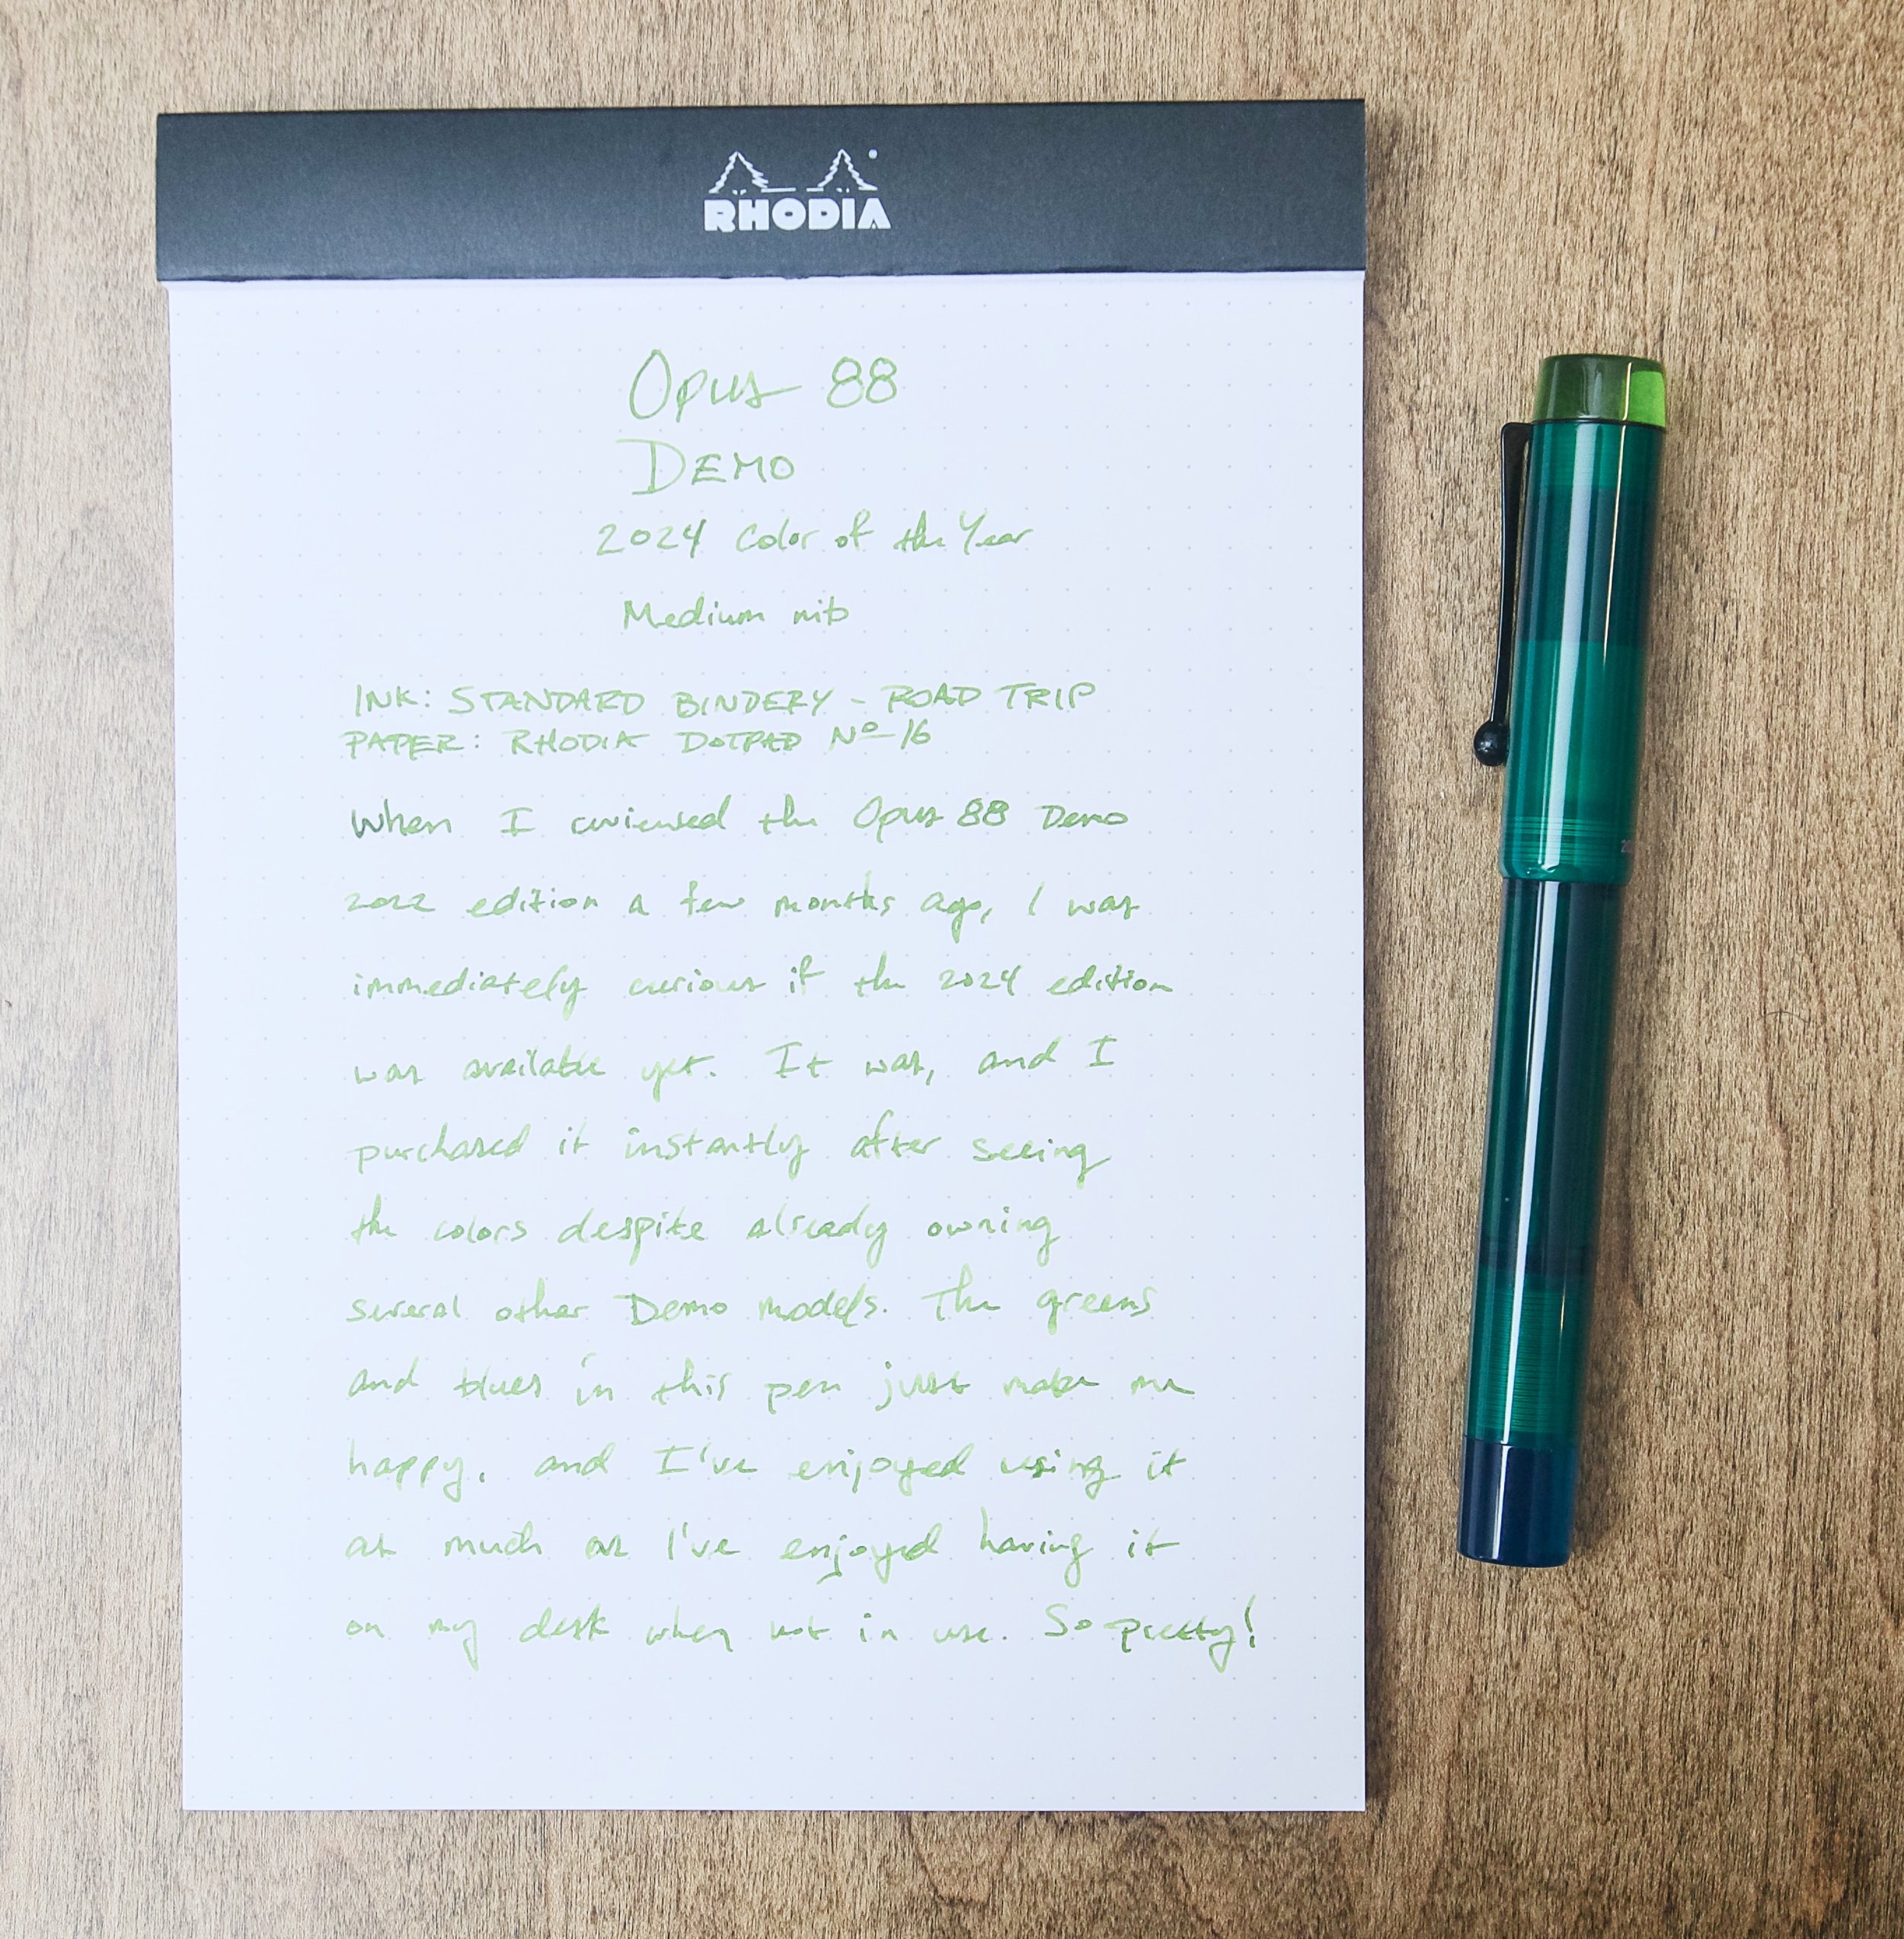 RHODIA
Opus 88
DEMO
2024 Color of the Year
Medium nib
INK: STANDARD BINDERY - ROAD TRIP
PAPER: RHODIA DOTPAD Nº 16
When I reviewed the Opus 88 Demo
2022 edition a few months ago, I was
immediately curious if the 2024 edition
was available yet. It was, and I
purchased it instantly after seeing
the colors despite already owning
several other Demo models. The greens
and blues in this pen just make me
happy, and I've enjoyed using it
as much as I've enjoyed having it
on my desk when not in use. So pretty!